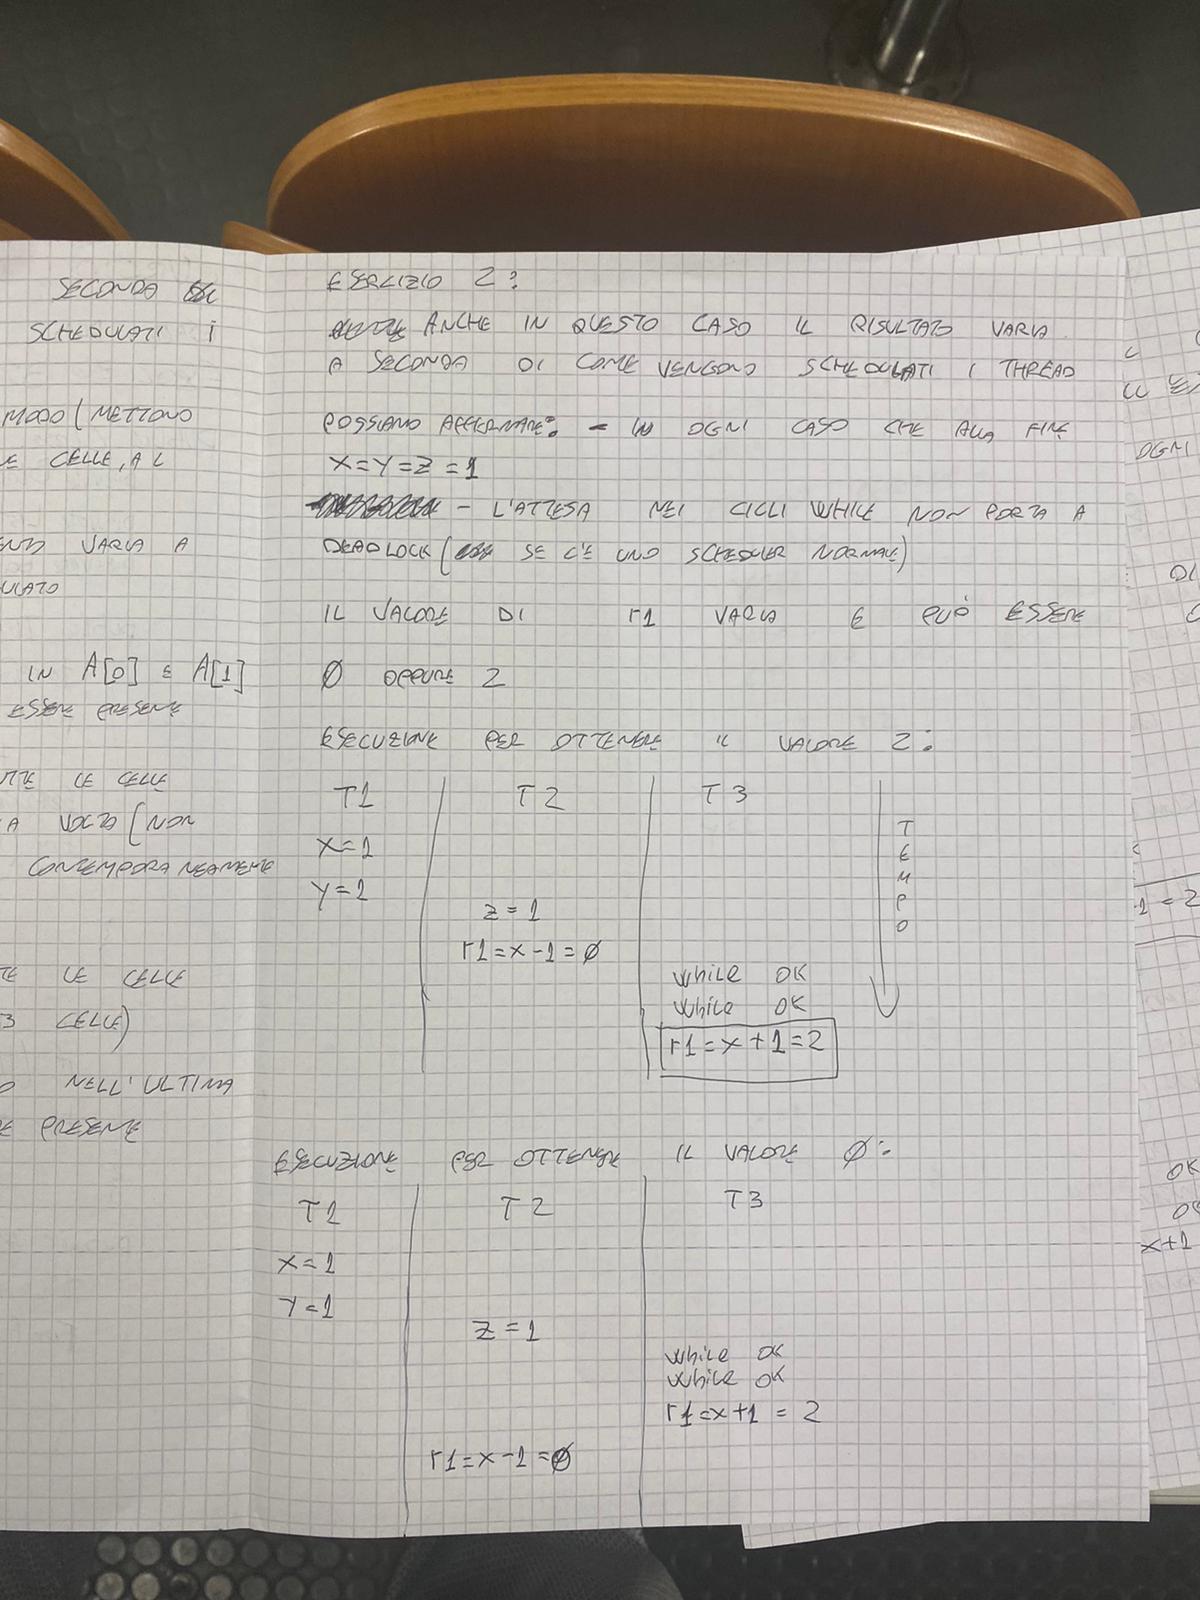 SECONDA
SCHEDULATI i
MODO (METTONO
E CELLE, AL
VARIA A
ULATO
IN A[0] E A[1]
ESSERE PRESENTE
LE CELLE
A VOLTA (NON
CONTEMPORANEAMENTE
LE CELLE
3 CELLE)
O NELL'ULTIMA
E PRESENTE
ESERCIZIO 2:
ANCHE IN QUESTO CASO IL RISULTATO VARIA
A SECONDA DI COME VENGONO SCHEDULATI I THREAD
POSSIAMO AFFERMARE: - IN OGNI CASO CHE ALLA FINE
X=Y=Z=1
- L'ATTESA NEI CICLI WHILE NON PORTA A
DEADLOCK ( SE C'E UNO SCHEDULER NORMALE)
IL VALORE DI r1 VARIA E PUÒ ESSERE
Ø OPPURE 2
ESECUZIONE PER OTTENERE IL VALORE 2:
T1 T2 T3
X=1
Y=1
Z=1
r1=x-1=Ø
while OK
while OK
r1=x+1=2
TEMPO
ESECUZIONE PER OTTENERE IL VALORE Ø:
T1 T2 T3
X=1
Y=1
Z=1
while OK
while OK
r1=x+1=2
r1=x-1=Ø
OGNI
DI
1=2
OK
OK
x+1